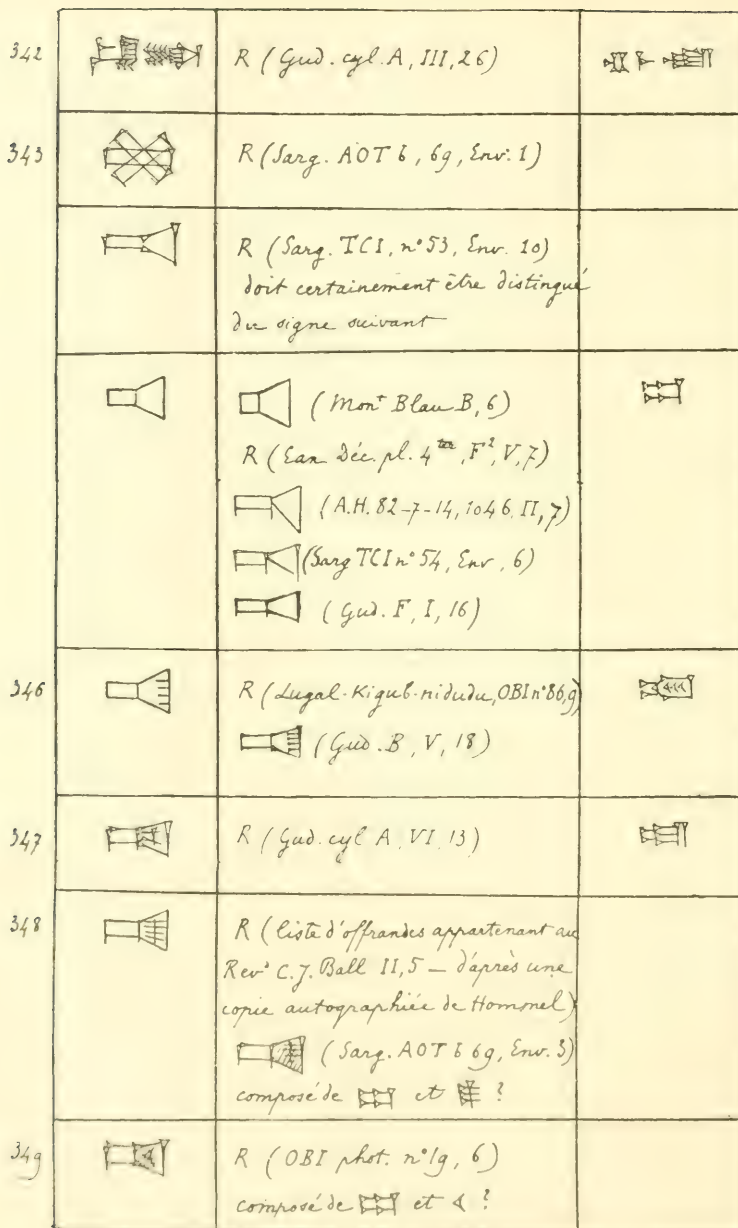 342 R (Gud. cyl. A, III, 26)
343 R (Sarg. AOT b, 69, Env. 1)
R (Sarg. TCI, n° 53, Env. 10)
doit certainement être distingué
du signe suivant
(Mont Blau B, 6)
R (Ean. Déc. pl. 4 ter, F², V, 7)
(A.H. 82-7-14, 1046. II, 7)
(Sarg TCI n° 54, Env, 6)
(Gud. F, I, 16)
346 R (Lugal-Kigub-nidudu, OBI n° 86, 9)
(Gud. B, V, 18)
347 R (Gud. cyl A, VI, 13)
348 R (liste d'offrandes appartenant au
Revd C. J. Ball II, 5 — d'après une
copie autographiée de Hommel)
(Sarg. AOT b 69, Env. 3)
composé de et ?
349 R (OBI phot. n° 19, 6)
composé de et ?